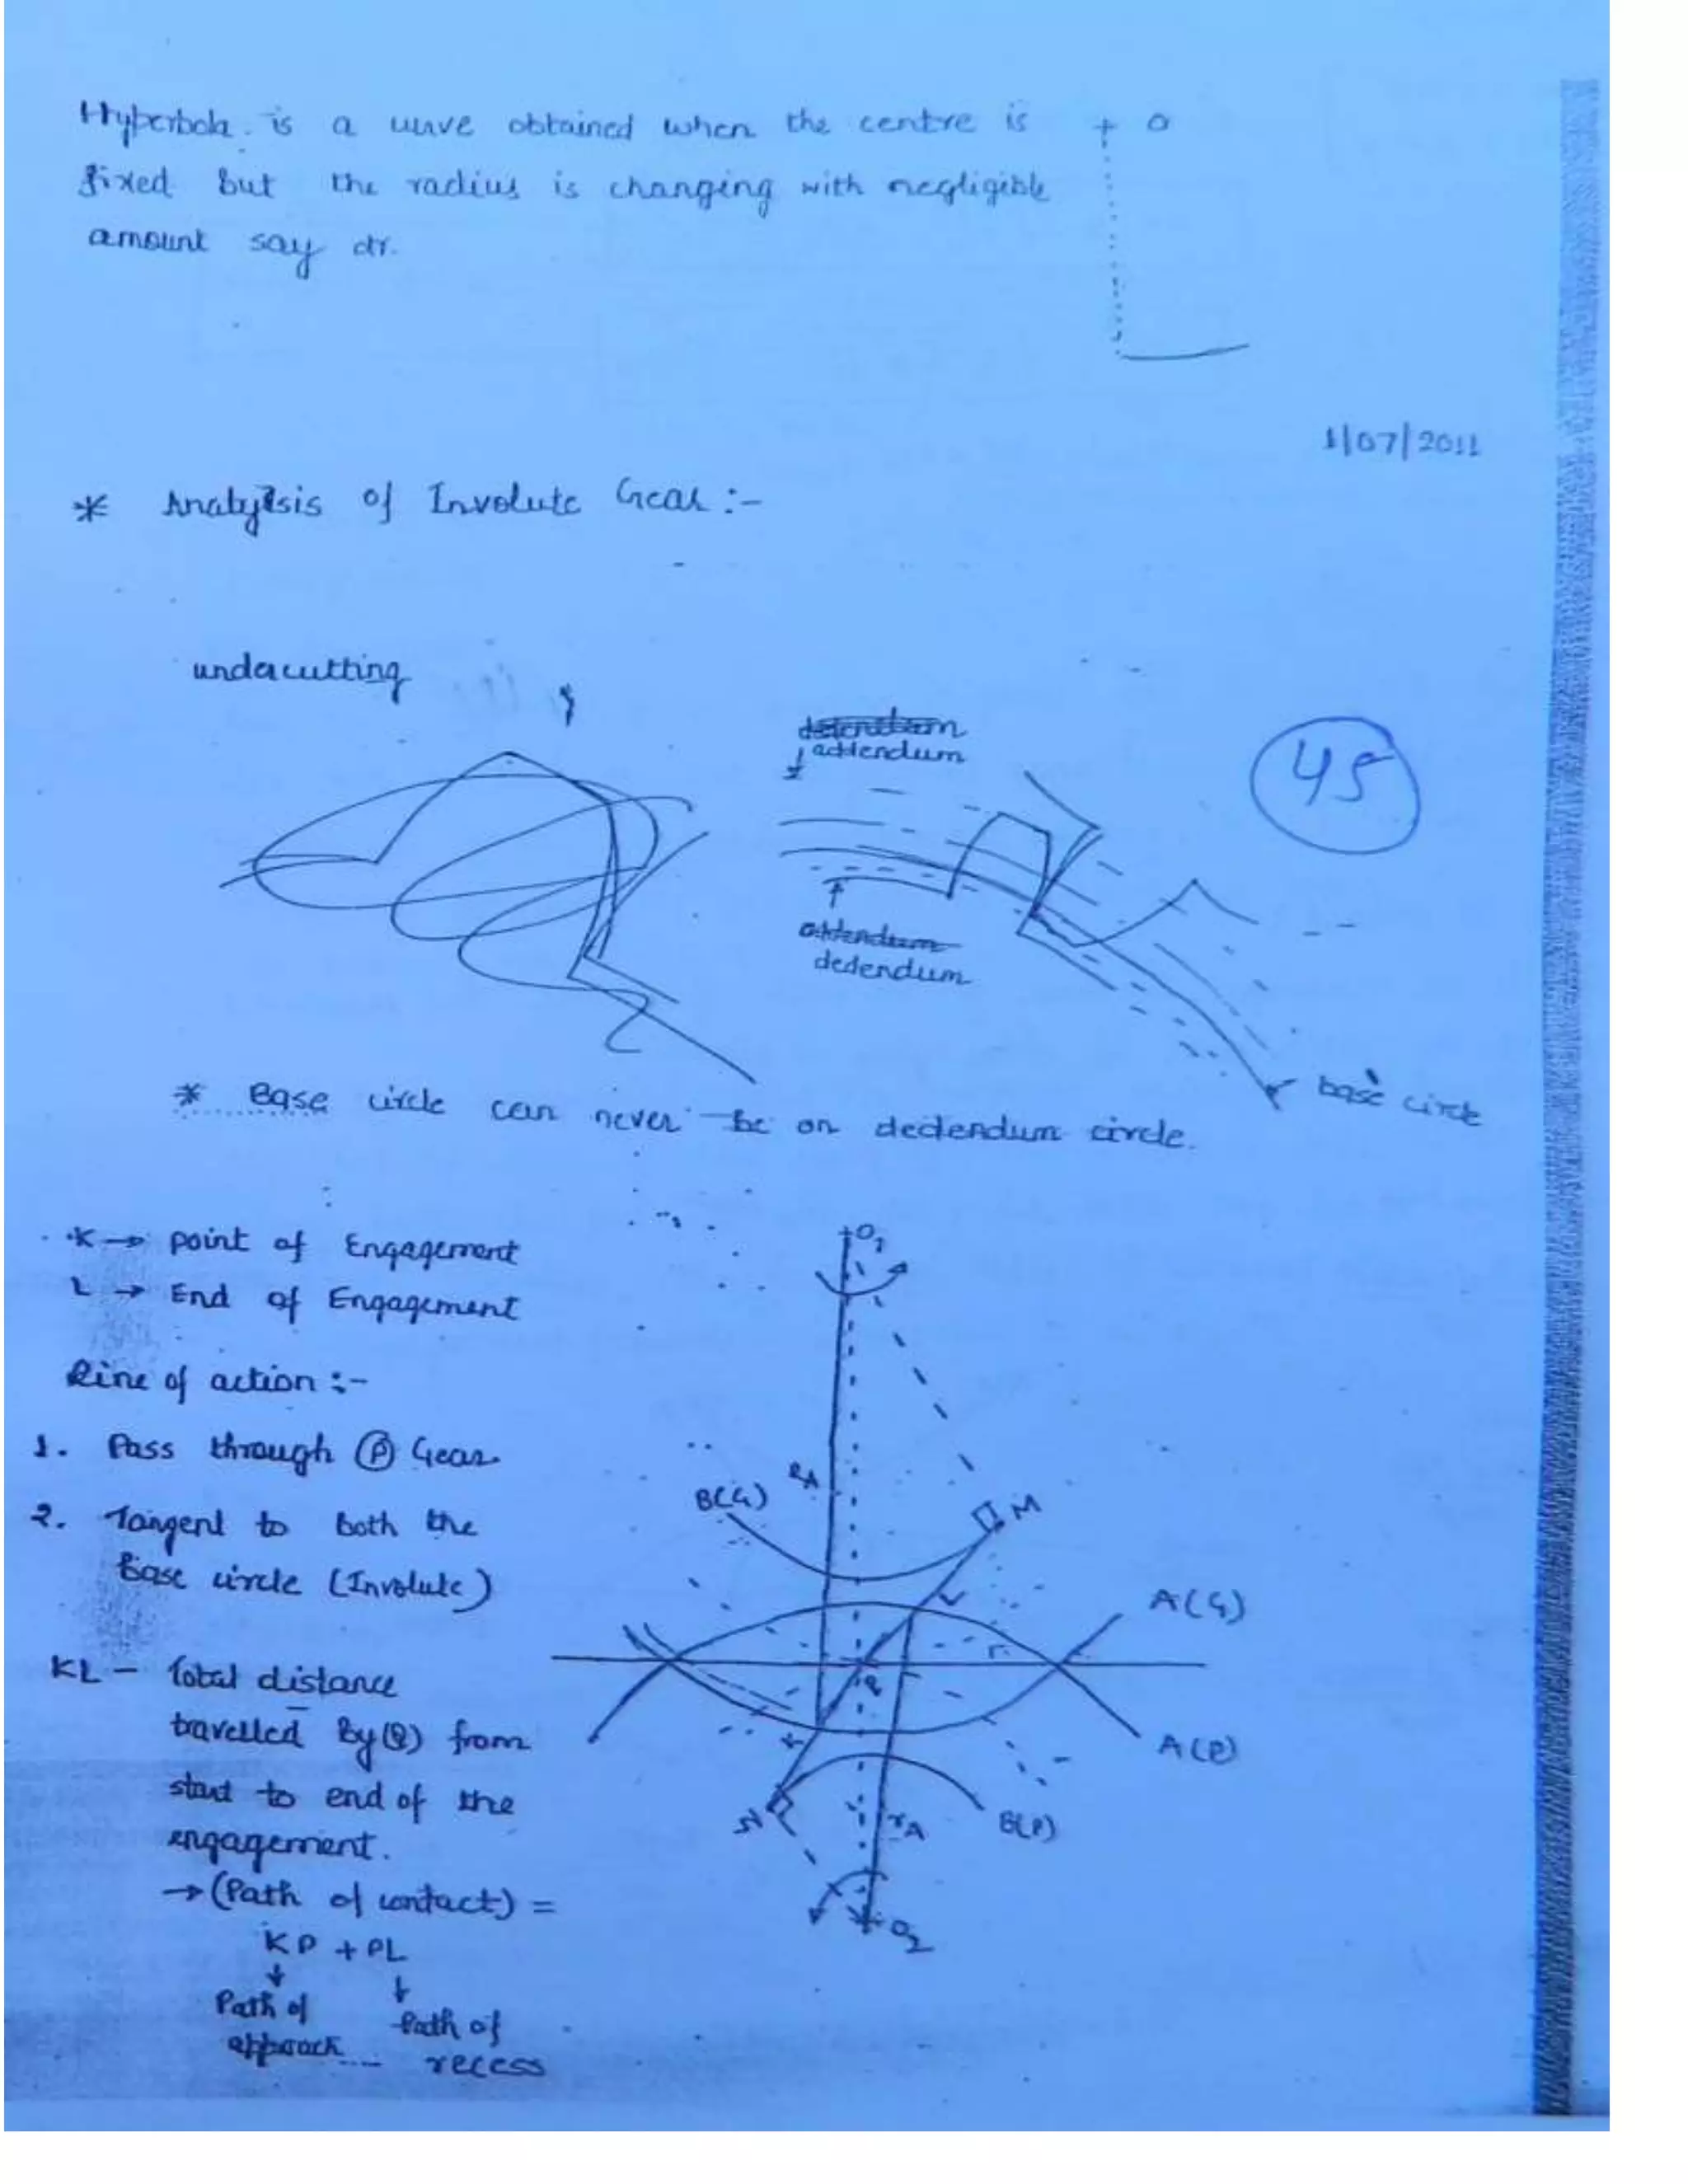 Hyperbola is a curve obtained when the centre is
fixed but the radius is changing with negligible
amount say dr.
+ o
1/07/2011
* Analysis of Involute Gear :-
undercutting
addendum
45
addendum
dedendum
base circle
* Base circle can never be on dedendum circle.
K → point of Engagement
L → End of Engagement
Line of action :-
1. Pass through (P) Gear
2. Tangent to both the
Base circle (Involute)
KL - Total distance
travelled By (P) from
start to end of the
engagement.
→ (Path of contact) =
KP + PL
Path of approach
Path of recess
O1
RA
B(G)
M
L
A(G)
P
K
A(P)
N
rA
B(P)
O2